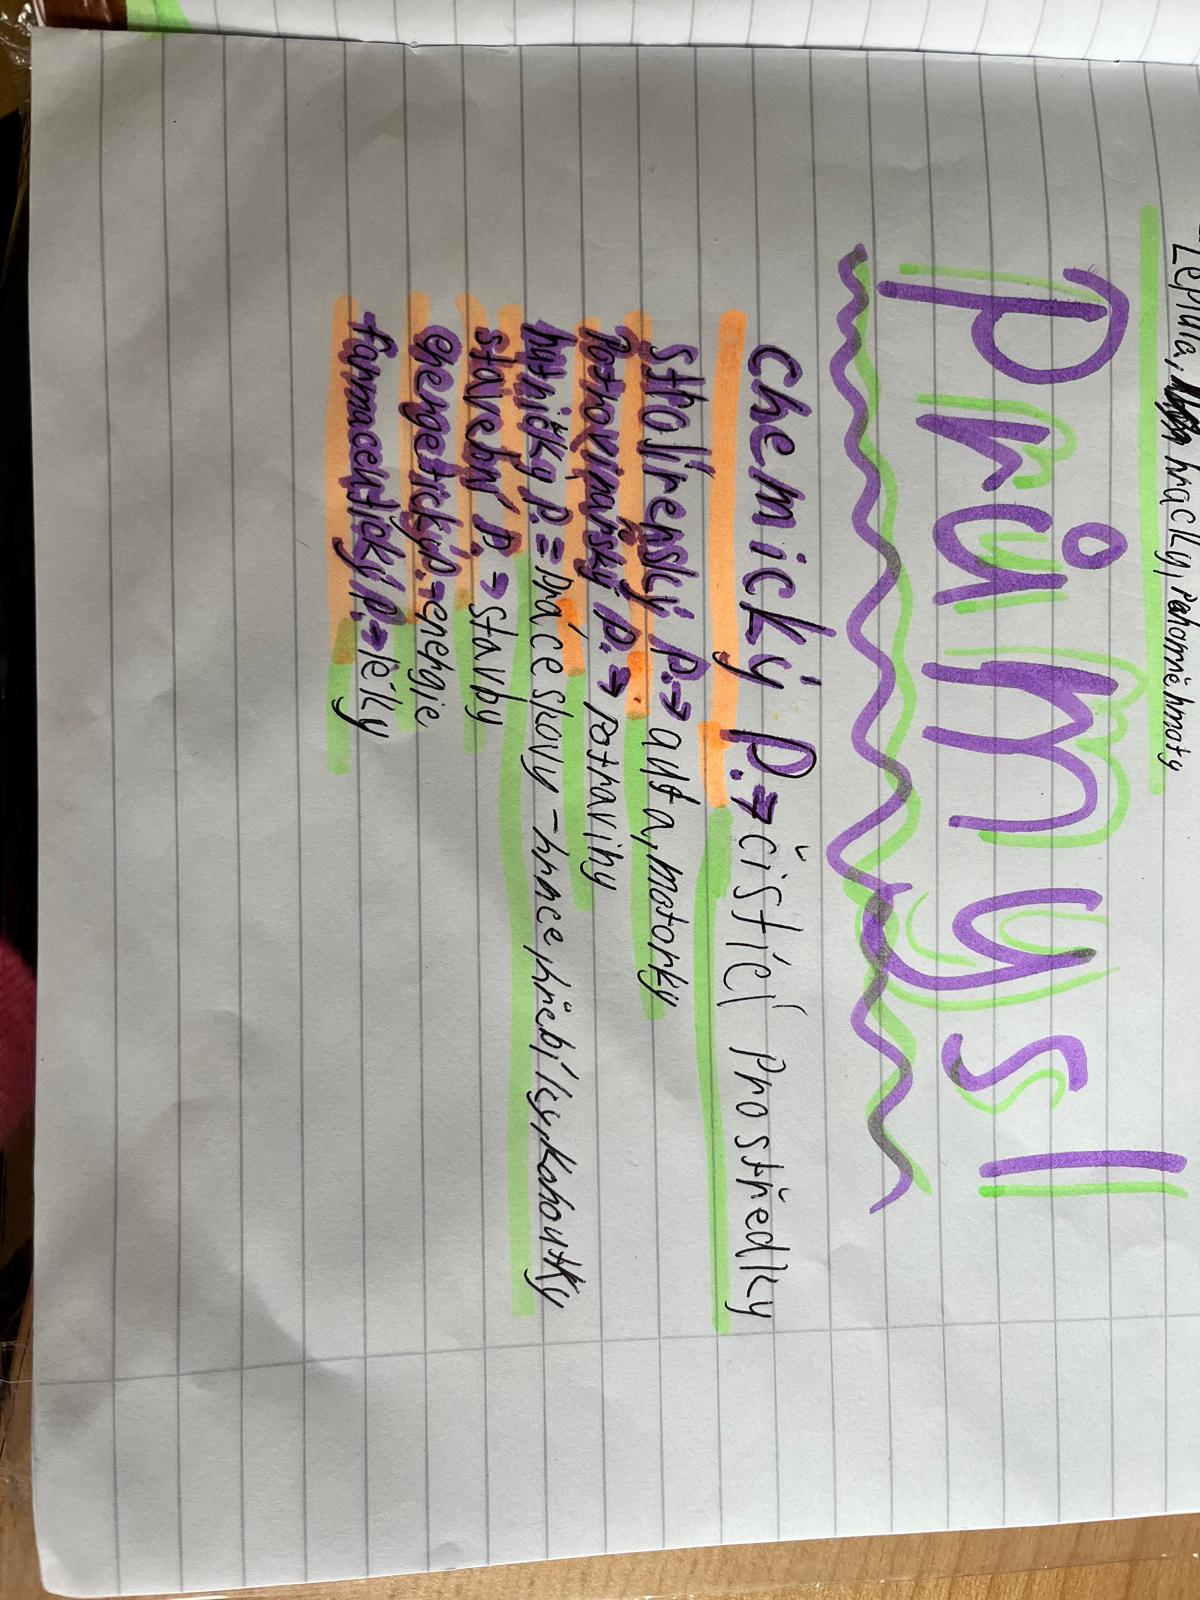 lepidla, hračky, pohonné hmoty
Průmysl
chemický p.→čistící prostředky
strojírenský p.→auta, motorky
Potravinářský p.→potraviny
hutnický p.=práce s kovy-hrnce, hřebíky, kohoutky
stavební p.→stavby
energetický p.→energie
farmaceutický p.→léky